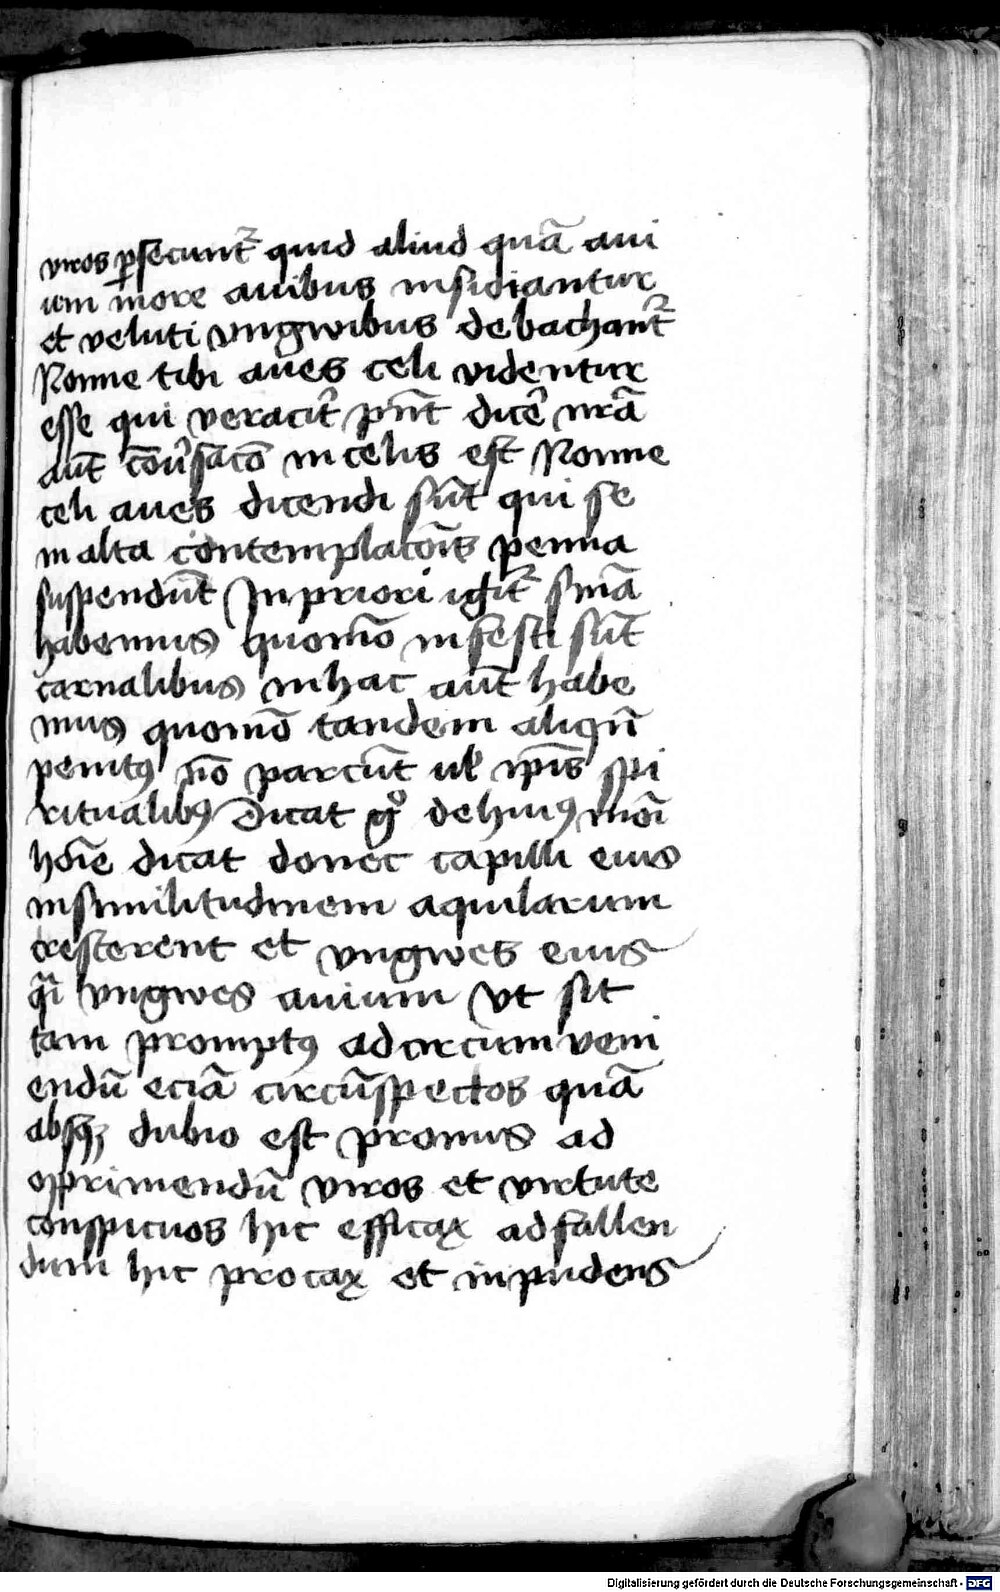 viros p̱secunt᷑ quid aliud quā aui
um more auibus insidiantur
et veluti vngwibus debachant᷑
Nonne tibi aues celi videntur
esse qui veracit᷑ pn̄t dice᷑ nrā
aut̄ cōu᷑sacō in celis est Nonne
celi aues dicendi sūt qui se
in alta contemplacōis penna
suspendūt In priori igit᷑ sniā
habemus quomō infesti sūt
carnalibus in hac aut̄ habe
mus quomō tandem aliqn̄
penitꝰ nō parcūt ul̕ ip̄is spi
ritualibꝰ Dicat gͦ de huiꝰmōi
hoīe dicat donec capilli eius
in similitudinem aquilarum
crescerent et vngwes eius
q̄i vngwes auium vt sit
tam promptꝰ ad circumveni
endū eciā circūspectos quā
absqꝫ dubio est pronus ad
opprimendū viros et virtute
conspicuos hic efficax ad fallen
dum hic procax et inpudens
Digitalisierung gefördert durch die Deutsche Forschungsgemeinschaft - DFG